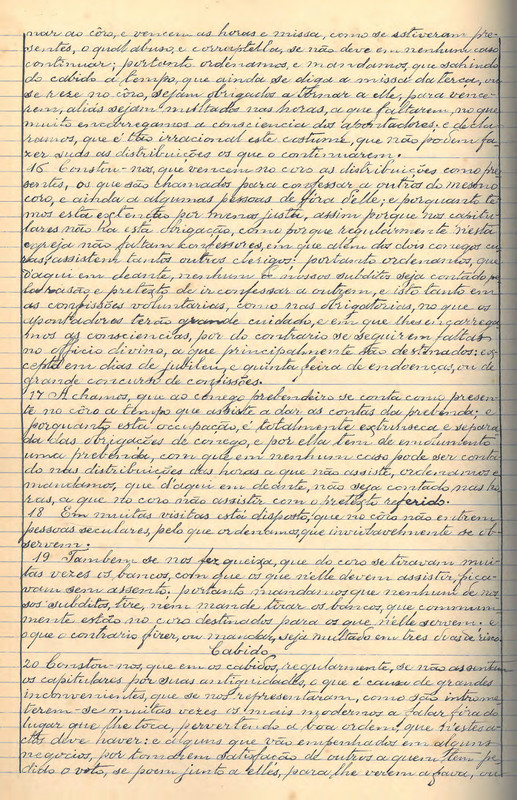 nar ao côro, e vencem as horas e missa, como se estiveram pre-
sentes, o qual abuso, e corruptella, se não deve em nenhum caso
continuar; portanto ordenamos, e mandamos, que sahindo
do cabido a tempo, que ainda se diga a missa da terça, ou
se reze no côro, sejam obrigados a tornar a elle, para vence-
rem, aliás sejam multados nas horas, a que faltarem, no que
muito encarregamos a consciencia dos apontadores; e decla-
ramos, que é tão irracional este costume, que não podem fa-
zer suas as distribuições os que o continuarem.
16 Constou-nos, que vencem no coro as distribuições como pre-
sentes, os que são chamados para confessar a outros do mesmo
coro, e ainda a algumas pessoas de fóra d'elle; e porquanto te-
mos esta exempção por menos justa, assim porque nos capitu-
lares não ha esta obrigação, como porque regularmente n'esta
egreja não faltam confessores, em que além dos dois conegos cu-
ras, assistem tantos outros clerigos: portanto ordenamos, que
d'aqui em deante, nenhum de nossos subditos seja contado
razão e pretexto de ir confessar a outrem, e isto tanto em
as confissões voluntarias, como nas obrigatorias, no que os
apontadores terão grande cuidado, e em que lhes encarrega-
mos as consciencias, por do contrario se seguirem faltas
no officio divino, a que principalmente são destinados: ex-
cepto em dias de jubileu, e quinta feira de endoenças, ou de
grande concurso de confissões.
17 Achamos, que ao conego prebendeiro se conta como presen-
te no côro a tempo que assiste a dar as contas da prebenda; e
porquanto esta occupação, é totalmente extrinseca e separa-
da das obrigações de conego, e por ella tem de emolumento
uma prebenda, com que em nenhum caso pode ser conta-
do nas distribuições das horas a que não assiste, ordenamos e
mandamos, que d'aqui em deante, não seja contado nas ho-
ras, a que no coro não assistir com o pretexto referido.
18 Em muitas visitas está disposto, que no côro não entrem
pessoas seculares, pelo que ordenamos, que inviolavelmente se ob-
servem.
19 Tambem se nos fez queixa, que do coro se tiravam mui-
tas vezes os bancos, com que os que n'elle devem assistir, fica-
vam sem assento: portanto mandamos que nenhum de nos-
sos subditos, tire, nem mande tirar os bancos, que commum-
mente estão no coro destinados para os que nelle servem: e
o que o contrario fizer, ou mandar, seja multado em tres dias de
Cabido
20 Constou-nos, que em os cabidos, regularmente, se não assentam
os capitulares por suas antiguidades, o que é causa de grandes
inconvenientes, que se nos representaram, como são introme-
terem-se muitas vezes os mais modernos a falar fóra do
lugar que lhe toca, pervertendo a boa ordem, que n'estes a-
ctos deve haver: e alguns que vão empenhados em alguns
negocios, por tomarem satisfação de outros a quem tem pe-
dido o voto, se poem junto a elles, para lhe verem a fava, ou